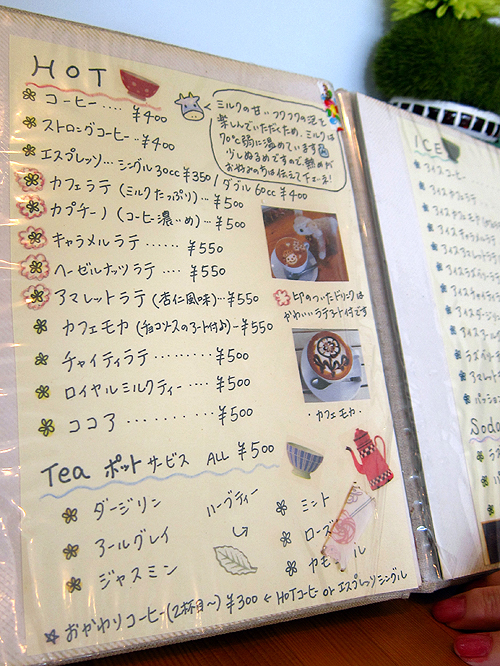 HOT
コーヒー.... ¥400
ストロングコーヒー..¥400
エスプレッソ...シングル30cc ¥350 / ダブル60cc ¥400
カフェラテ(ミルクたっぷり)...¥500
カプチーノ(コーヒー濃いめ)...¥500
キャラメルラテ...... ¥550
ヘーゼルナッツラテ.... ¥550
アマレットラテ(杏仁風味)...¥550
カフェモカ(チョコソースのアート付き)-¥550
チャイティラテ......... ¥500
ロイヤルミルクティー.... ¥500
ココア........... ¥500
ミルクの甘い、フワフワの泡を
楽しんでいただくため、ミルクは
70℃弱に温めています
少しぬるめですので、熱めが
お好みの方は伝えて下さいネ!
印のついたドリンクは
かわいいラテアート付です
・カフェモカ・
Tea ポットサービス ALL ¥500
ダージリン
アールグレイ
ジャスミン
ハーブティー
ミント
ローズ
カモ ル
おかわりコーヒー(2杯目〜) ¥300 ← HOTコーヒー or エスプレッソシングル
ICE
アイスコーヒー
アイスカフェラテ
Soda